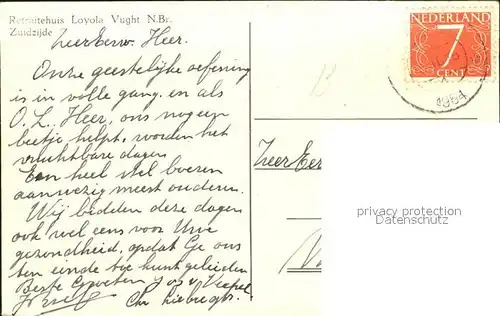 Retraitehuis Loyola Vught N.Br.
Zuidzijde
Zeer Eerw. Heer.
Onze geestelijke oefening
is in volle gang. en als
O. L. Heer, ons nog een
beetje helpt, worden het
vruchtbare dagen
Een heel stel boeren
aanwezig meest ouderen.
Wij bidden deze dagen
ook wel eens voor Uwe
gezondheid, opdat Ge ons
ten einde toe kunt geleiden
Beste Groeten
Chr
NEDERLAND
7
CENT
1954
Zeer Eer
privacy protection
Datenschutz